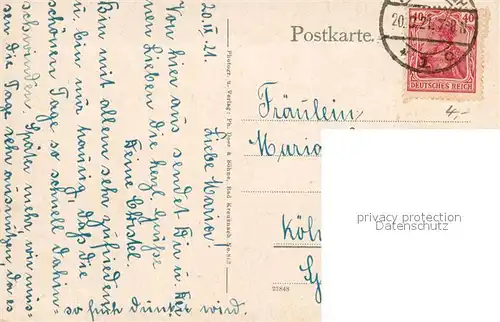 20.IX.21.
Liebe Mario!
Von hier aus sendet Dir u. Dei-
nen Lieben die herzl. Grüße
Deine Christel.
Bin mit allem sehr zufrieden
u. bin nur traurig, daß die
schönen Tage so schnell dahin-
schwinden. Später mehr, wir müs-
sen die Tage sehr ausnützen, da es
so früh dunkel wird.
Photogr. u. Verlag: Ph. & Söhne, Bad Kreuznach No. 812
Postkarte.
40 40
DEUTSCHES REICH
4,-
Fräulein
Mario
Köln
23848
privacy protection
Datenschutz